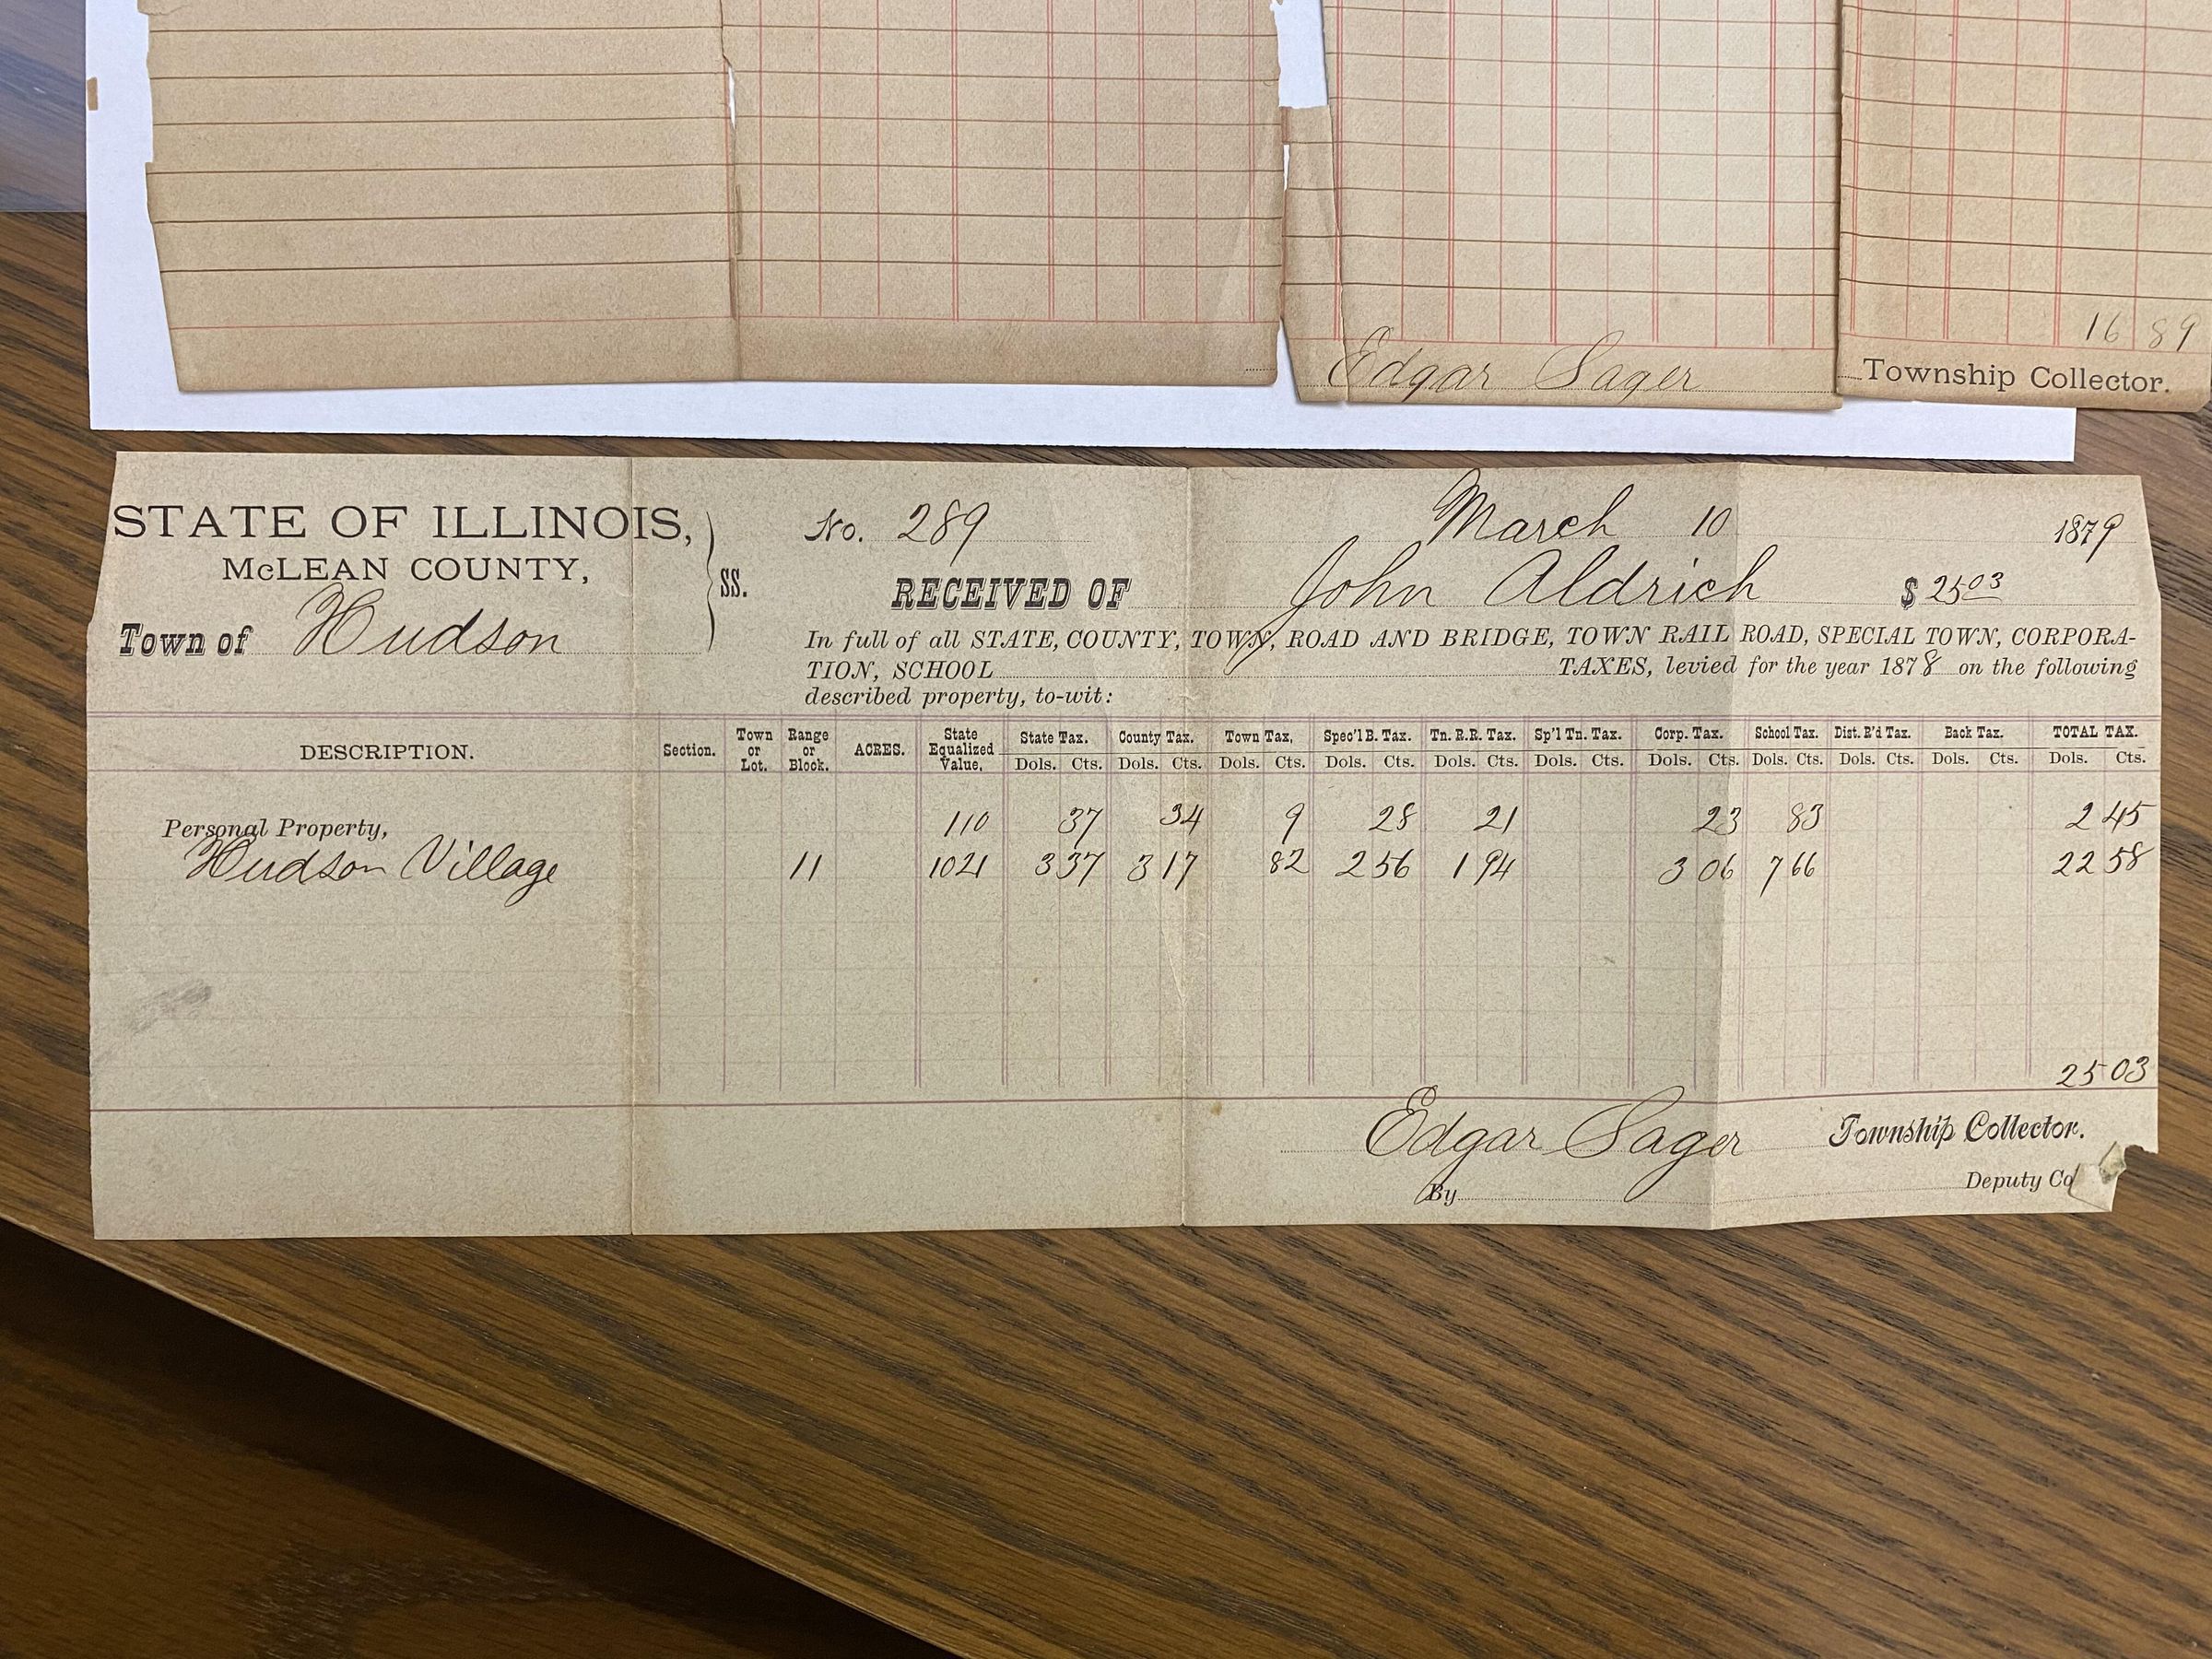 16 89
Edgar Sager Township Collector.
STATE OF ILLINOIS,
McLEAN COUNTY,
Town of Hudson
SS.
No. 289 March 10 1879
RECEIVED OF John Aldrich $ 25 03
In full of all STATE, COUNTY, TOWN, ROAD AND BRIDGE, TOWN RAIL ROAD, SPECIAL TOWN, CORPORA-
TION, SCHOOL TAXES, levied for the year 1878 on the following
described property, to-wit:
DESCRIPTION. Section. Town or Lot. Range or Block. ACRES. State Equalized Value. State Tax. County Tax. Town Tax, Spec'l B. Tax. Tn. R.R. Tax. Sp'l Tn. Tax. Corp. Tax. School Tax. Dist. B'd Tax. Back Tax. TOTAL TAX.
Dols. Cts. Dols. Cts. Dols. Cts. Dols. Cts. Dols. Cts. Dols. Cts. Dols. Cts. Dols. Cts. Dols. Cts. Dols. Cts. Dols. Cts.
Personal Property, 110 37 34 9 28 21 23 83 2 45
Hudson Village 11 1021 3 37 3 17 82 2 56 1 94 3 06 7 66 22 58
25 03
Edgar Sager Township Collector.
By Deputy Co